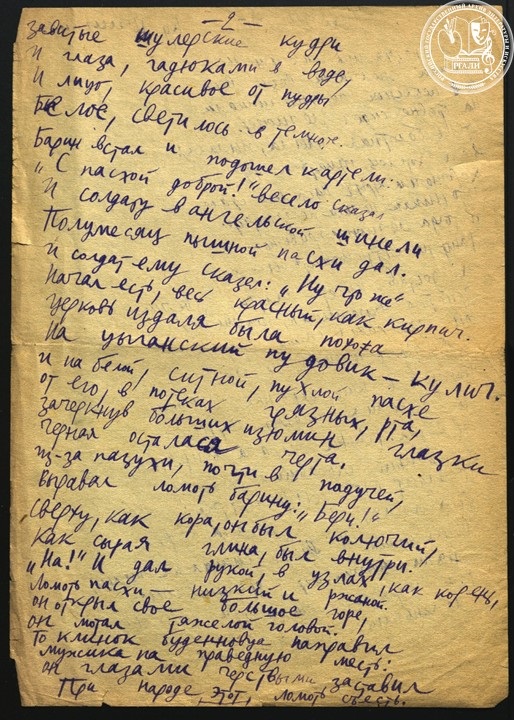 – 2 –
завитые шулерские кудри
И глаза, гадюками в воде,
И лицо, красивое от пудры
Белое, светилось в темноте.
Барин встал и подошел к артели.
"С пасхой доброй!" весело сказал
И солдату в ангельской шинели
Полумесяц пышной пасхи дал.
И солдат ему сказал: "Ну что же"
Начал есть, весь красный, как кирпич.
церковь издаля была похожа
На цыганский пудовик – кулич.
и на белой, ситной, пухлой пасхе
от его, в потеках грязных, рта,
зачеркнув больших изюмин глазки
черная осталася черта.
Из-за пазухи, почти в падучей,
вырвал ломоть барину: "Бери!"
сверху, как кора, он был колючий,
как сырая глина, был внутри.
"На!" И дал рукой, в узлах, как корень,
ломоть пасхи – низкий и ржаной.
он открыл свое большое горе,
он мотал тяжелой головой.
То клинок буденновца направил
мужика на праведную месть:
он глазами черствыми заставил
При народе этот ломоть съесть.
РОССИЙСКИЙ ГОСУДАРСТВЕННЫЙ АРХИВ ЛИТЕРАТУРЫ И ИСКУССТВА
РГАЛИ